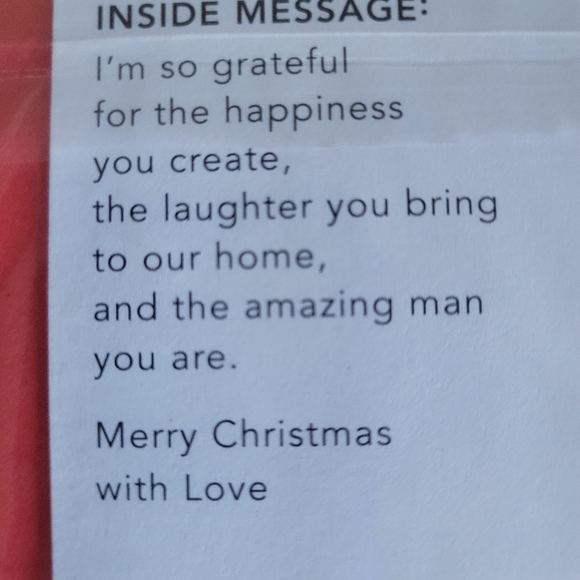 INSIDE MESSAGE:
I'm so grateful
for the happiness
you create,
the laughter you bring
to our home,
and the amazing man
you are.
Merry Christmas
with Love